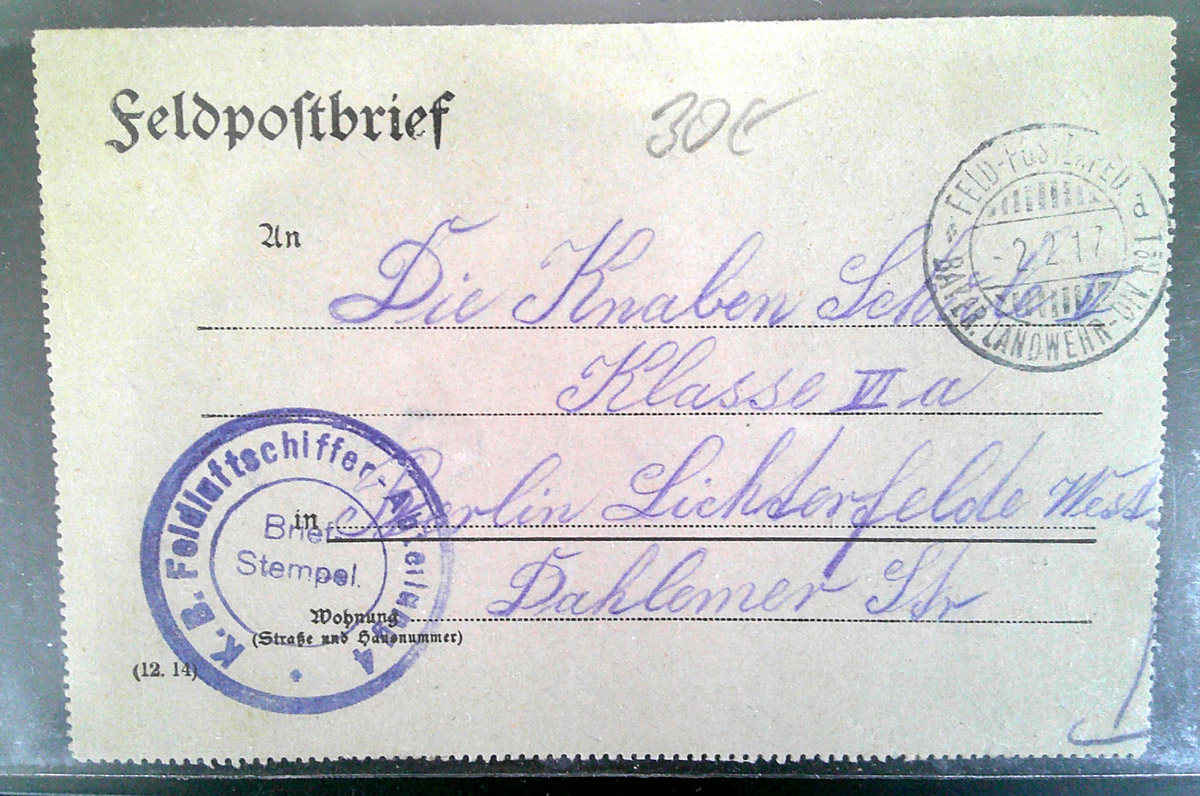 Feldpostbrief
30€
* FELD-POSTEXPED. d 1ten
BAY. LANDWEHR-DIV
-2.2.17
An Die Knaben Schule
Klasse VI a
in Berlin Lichterfelde West
Wohnung Dahlemer Str
(Straße und Hausnummer)
(12. 14)
K. B. Feldluftschiffer-Abteilung 4
Brief
Stempel.